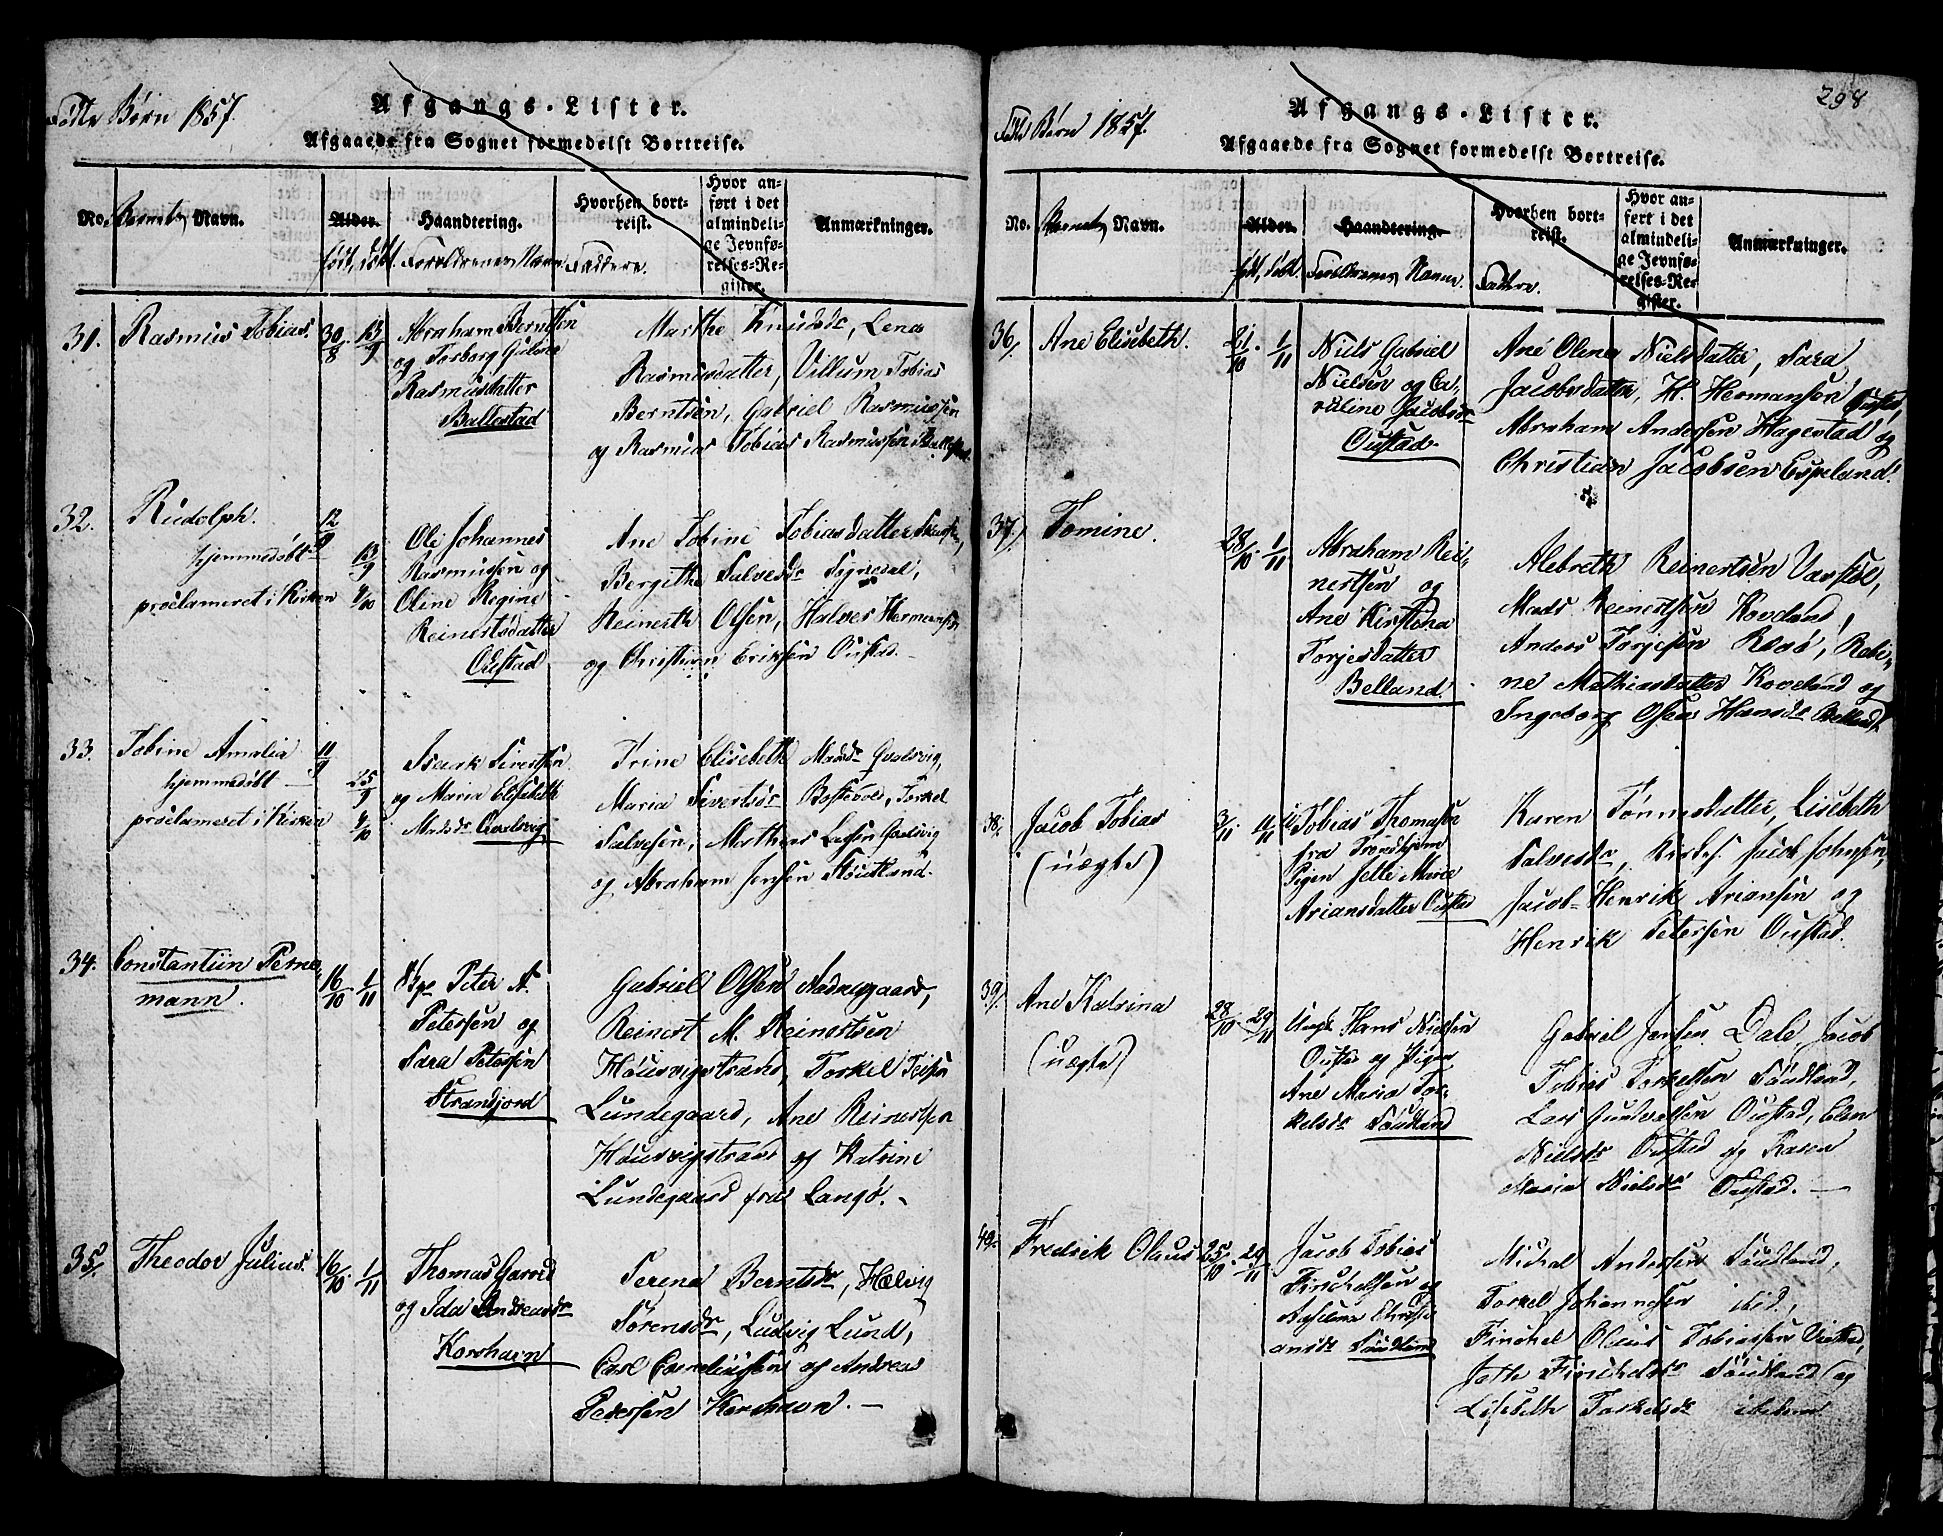 Fødte Børn 1857.
Afgangs-Lister.
Afgaaede fra Sognet formedelst Bortreise.
No. Barnets Navn.
Alder.
født, døbt.
Haandtering.
Forældrenes Navne
Hvorhen bortreist.
Faddere.
Hvor an-
ført i det
almindeli-
ge Jevnfø-
relses-Re-
gister.
Anmærkninger.
31. Rasmus Tobias. 30/8 . 13/9
Abraham Berntsen
og Torborg Gurine
Rasmusdatter
Ballestad
Marthe Knudsdr, Lena
Rasmusdatter, Villum Tobias
Berntsen, Gabriel Rasmussen
og Rasmus Tobias Rasmussen
32. Rudolph.
hjemmedøbt
proclameret i Kirken
12/9 13/9 4/10
Ole Johannes
Rasmussen og
Oline Regine
Reinertsdatter
Oustad
Ane Tobine Tobiasdatter
Bergithe Salvesdr Sognedal,
Reinerth Olsen, Halves Hermansen
og Christian Eriksen Oustad.
33. Tobine Amalia
hjemmedøbt
proclameret i Kirken
11/9 25/9 4/10
Isaak Sivertsen
og Maria Elisabeth
Madsdr Qvalsvig
Trine Elisebeth Madsdr Qvalsvig,
Maria Sivertsdr Bostevold, Torkel
Salvesen, Mathias Larsen Qvalsvig
og Abraham Jensen Stoutland.
34. Constantiin Perne
mann.
16/10 . 1/11
Peter A.
Petersen og
Sara Petersen
Strandjord
Gabriel Olsen Aadnegaard,
Reinert M. Reinertsen
Housvigstrand, Torkel
Lundegaard, Ane Reinertsen
Housvigstrand og Katrine
Lundegaard fra Langø.
35. Theodor Julius. 16/10 . 1/11
Thomas Garrid
og Ida Andreasdr
Korshavn
Serena Berntsdr, Hælvig
Sørensdr, Ludvig Lund,
Carl Corneliussen og Andreas
Pedersen Korshavn.
298
Fødte Børn 1857.
Afgangs-Lister.
Afgaaede fra Sognet formedelst Bortreise.
No. Barnets Navn.
Alder.
født, døbt.
Haandtering.
Forældrenes Navne.
Hvorhen bort-
reist.
Faddere.
Hvor an-
ført i det
almindeli-
ge Jevnfø-
relses-Re-
gister.
Anmærkninger.
36. Ane Elisebeth. 21/10 . 1/11
Niels Gabriel
Nielsen og Ca-
roline Jacobsdr
Oustad.
Ane Olene Nielsdatter, Sara
Jacobsdatter, H. Hermansen Oustad,
Abraham Andersen Hagestad og
Christian Jacobsen Espeland.
37. Tomine. 28/10 . 1/11
Abraham Rei-
nertsen og
Ane Kirstina
Torjesdatter
Belland.
Alebreth Reinertsen Varstøl,
Mads Reinertsen Koveland,
Anders Torjesen Rosø, Rebi-
ne Mathiasdatter Koveland og
Ingeborg Hansdr Belland.
38. Jacob Tobias
(uægte)
3/11 . 11/11
Tobias Thomasen
fra Trondhjem
Pigen Jelle Marie
Ariansdatter Oustad
Karen Tønnesdatter, Lisebeth
Salvesdr, Kirkes. Jacob Johnsen,
Jacob Henrik Ariansen og
Henrik Petersen Oustad.
39. Ane Katrina
(uægte)
28/10 . 29/11
Ungk. Hans Nielsen
Oustad og Pigen
Ane Maria Tor-
kelsdr Søudland
Gabriel Jensen Dale, Jacob
Tobias Torkelsen Søudland,
Lars Gundvalsen Oustad, Elen
Nielsdr Oustad og Karen
Maria Nielsdr Oustad.
40. Fredrik Olaus 25/10 . 29/11
Jacob Tobias
Finckelsen og
Christi-
ansdr Søudland
Michel Andersen Søudland,
Torkel Johannesen ibid.,
Finckel Olaus Tobiassen
Finckelsdr Søudland og
Lisebeth Torkelsdr ibidem